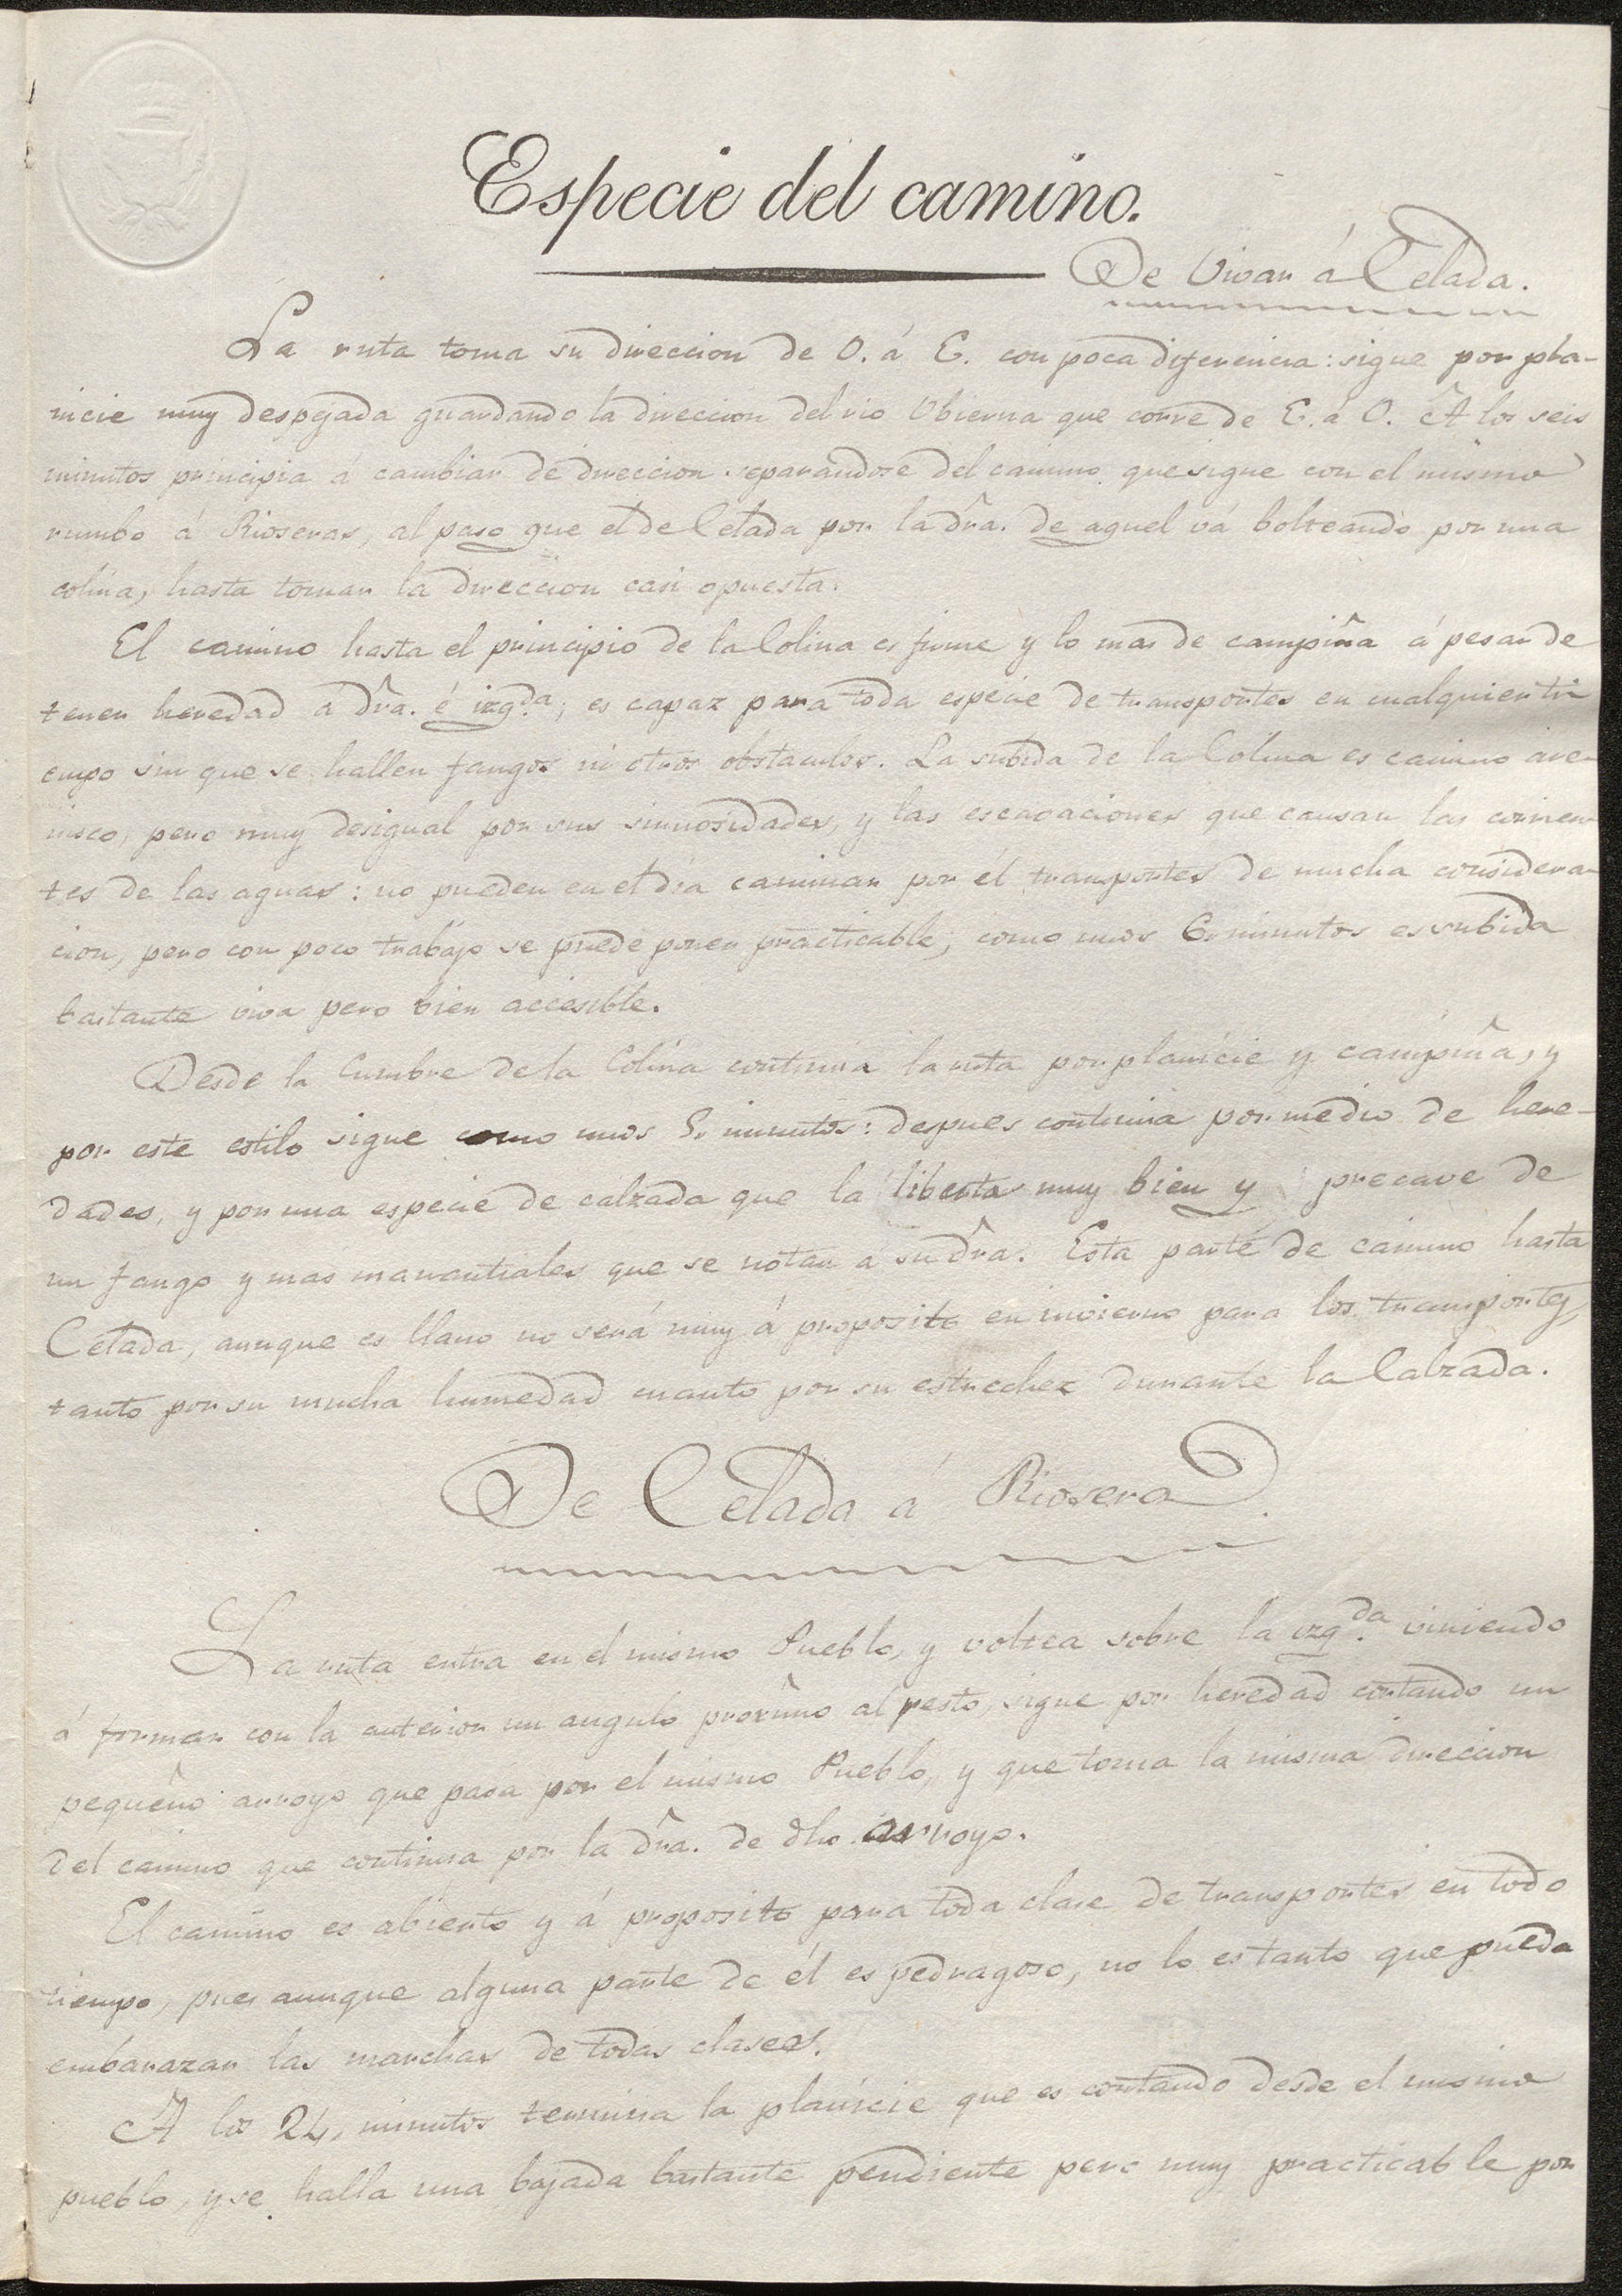 Especie del camino.
De Vivar á Celada.
La ruta toma su direccion de O. á E. con poca diferencia: sigue por pla-
nicie muy despejada guardando la direccion del rio Ubierna que corre de E. á O. A los seis
minutos principia á cambiar de direccion separandose del camino que sigue con el mismo
rumbo á Rioseras, al paso que el de Celada por la dr̃a. de aquel vá bolteando por una
colina, hasta tomar la direccion casi opuesta.
El camino hasta el principio de la Colina es firme y lo mas de campiña á pesar de
tener heredad á dr̃a. é izq.da; es capaz para toda especie de transportes en cualquier ti-
empo sin que se hallen fangos ni otros obstaculos. La subida de la Colina es camino are-
nisco, pero muy desigual por sus sinuosidades, y las escavaciones que causan las corrien-
tes de las aguas: no pueden en el dia caminar por él transportes de mucha considera-
cion, pero con poco trabajo se puede poner practicable; como unos 6. minutos es subida
bastante viva pero bien accesible.
Desde la Cumbre de la Colina continúa la ruta por planicie y campiña, y
por este estilo sigue como unos 5. minutos: despues continua por medio de here-
dades, y por una especie de calzada que la liberta muy bien y precave de
un fango y mas manantiales que se notan á su dr̃a. Esta parte de camino hasta
Celada, aunque es llano no será muy á proposito en invierno para los transportes,
tanto por su mucha humedad cuanto por su estrechez durante la Calzada.
De Celada á Rioseras.
La ruta entra en el mismo Pueblo, y voltea sobre la izq.da viniendo
á formar con la anterior un angulo proximo al resto, sigue por heredad cortando un
pequeño arroyo que pasa por el mismo Pueblo, y que toma la misma direccion
del camino que continua por la dr̃a. de dho arroyo.
El camino es abierto y á proposito para toda clase de transportes en todo
tiempo, pues aunque alguna parte de él es pedragoso, no lo es tanto que pueda
embarazar las marchas de todas clases.
A los 24, minutos termina la planicie que es contando desde el mismo
pueblo, y se halla una bajada bastante pendiente pero muy practicable por